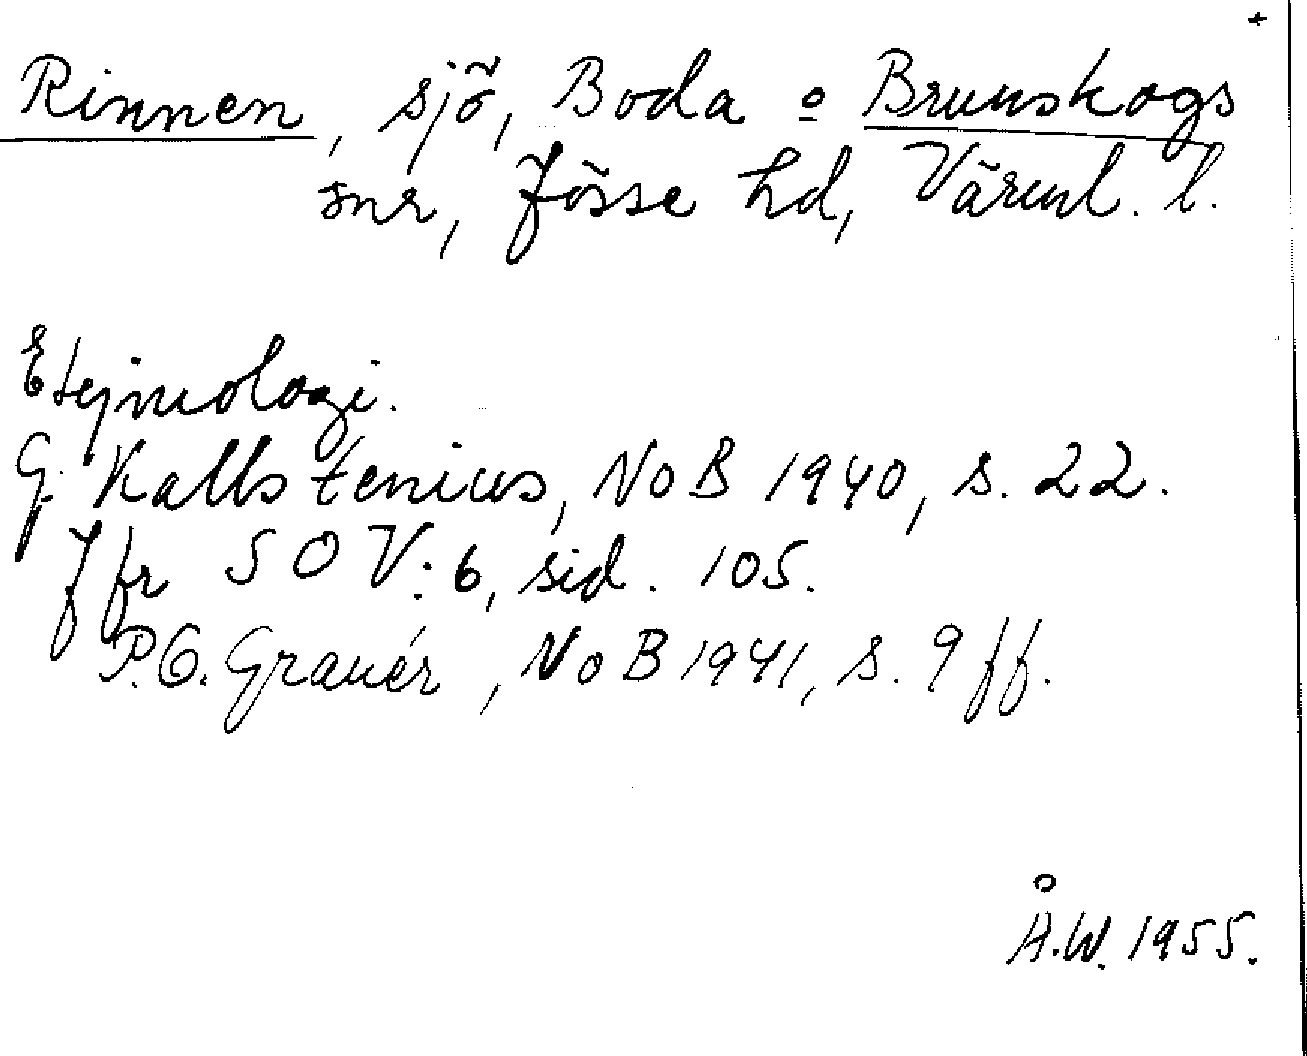 +
Rinnen, sjö, Boda o Brunskogs
snr, Jösse hd, Värml. l.
Etymologi.
G. Kallstenius, NoB 1940, s. 22.
Jfr SOV: 6, sid. 105.
P.O. Granér, NoB 1941, s. 9 ff.
Å.W. 1955.